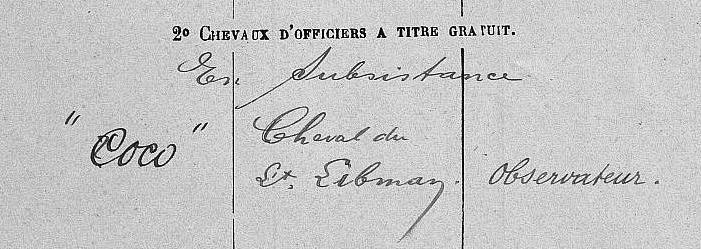 2º CHEVAUX D'OFFICIERS A TITRE GRATUIT.
En Subsistance
"Coco" Cheval du
Lt. Libman. Observateur.